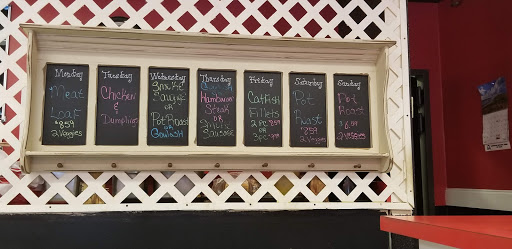 Monday
Meat
Loaf
$8.59
2 Veggies
Tuesday
Chicken
&
Dumplins
Wednesday
Smoke
Sausage
OR
Pot Roast
OR
Goulash
Thursday
Hamburger
Steak
OR
Smoke
Sausage
Friday
Catfish
Fillets
2 pc
3 pc
Saturday
Pot
Roast
8.59
2 Veggies
Sunday
Pot
Roast